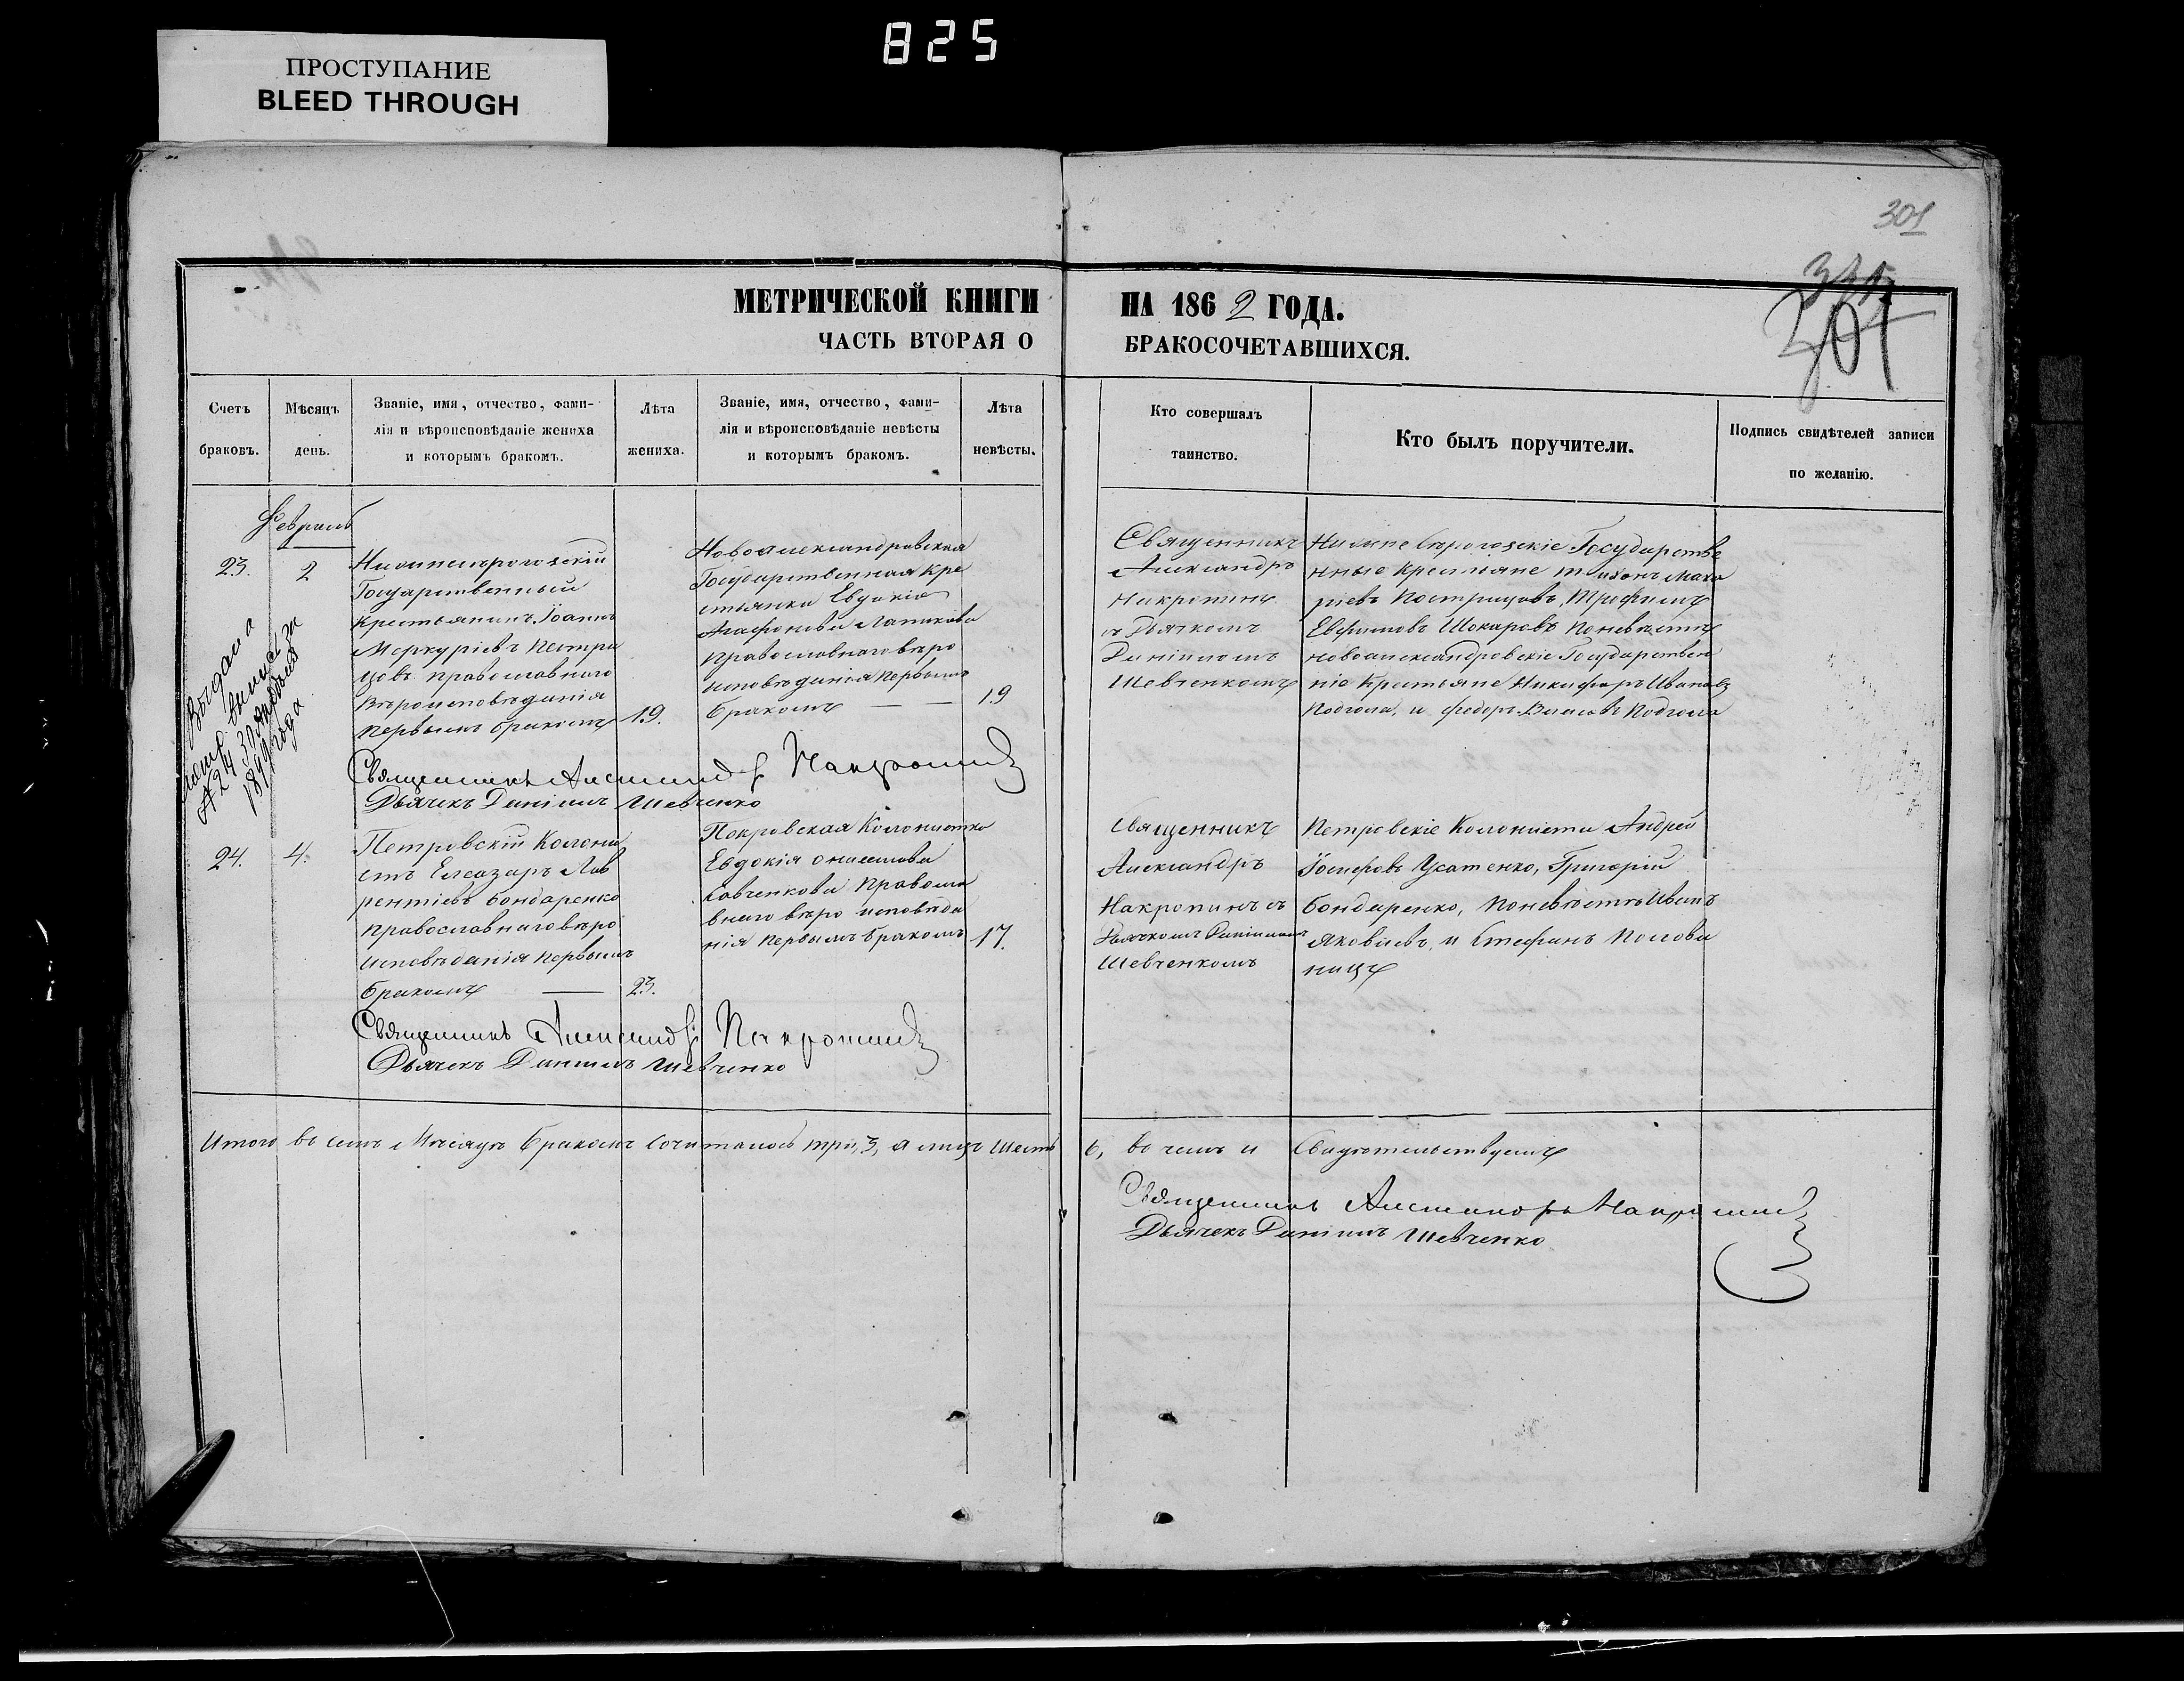 825
ПРОСТУПАНИЕ
BLEED THROUGH
301
301
МЕТРИЧЕСКОЙ КНИГИ НА 1862 ГОДА.
ЧАСТЬ ВТОРАЯ О БРАКОСОЧЕТАВШИХСЯ.
Счетъ браковъ.
Мѣсяцъ день.
Званіе, имя, отчество, фами-
лія и вѣроисповѣданіе жениха
и которымъ бракомъ.
Лѣта жениха.
Званіе, имя, отчество, фами-
лія и вѣроисповѣданіе невѣсты
и которымъ бракомъ.
Лѣта невѣсты.
Кто совершалъ
таинство.
Кто былъ поручители.
Подпись свидѣтелей записи
по желанію.
Февраль
23.
2
Государственный
Крестьянинъ Іоаннъ
Меркуріевъ Пестри
цовъ православнаго
Вѣроисповѣданія
первымъ бракомъ
19.
Новоалександровская
Государственная кре
стьянка Евдокія
Агафонова
Православнаго вѣро
исповѣданія первымъ
бракомъ
19
Священникъ
Александръ
Накропинъ
съ Дьячкомъ
Даніиломъ
Шевченкомъ
Государстве
нные крестьяне Мака
ріевъ Трофимъ
Евфимовъ по невѣстѣ
новоалександровскіе Государствен
ніе Крестьяне Никифоръ Ивановъ
и Федоръ
Выдана
1891 года
Священникъ Александръ Накропинъ
Дьячекъ Даніилъ Шевченко
24.
4.
Петровскій Колони
стъ Елеазаръ Лав
рентіевъ Бондаренко
православнаго вѣро
исповѣданія первымъ
бракомъ
23.
Покровская Колонистка
Евдокія
Савченкова Правосла
внаго вѣро исповѣда
нія первымъ бракомъ
17.
Священникъ
Александръ
Накропинъ съ
Дьячкомъ Даніиломъ
Шевченкомъ
Петровскіе Колонисти Андрей
Іосифовъ Усатенко, Григорій
Бондаренко, по невѣстѣ Иванъ
Яковлевъ, и Стефанъ Полови
ницъ
Священникъ Александръ Накропинъ
Дьячекъ Даніилъ Шевченко
Итого въ семъ Мѣсяцѣ бракомъ сочиталось три, 3, а лицъ шесть 6, въ чемъ и Свидѣтельствуемъ
Священникъ Александръ Накропинъ
Дьячекъ Даніилъ Шевченко